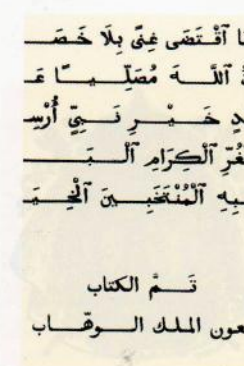 ٱقْتَضَى غِنًى بِلَا خَصَـ
ٱللَّـهَ مُصَلِّـيـًـا عَـ
خَـيْـرِ نَـبِيٍّ أُرْسِـ
ٱلْكِرَامِ ٱلْبَـ
ٱلْمُنْتَخَبِـينَ ٱلْخِـيَـ
تَـمَّ الكتاب
بعون الملك الـوهّـاب